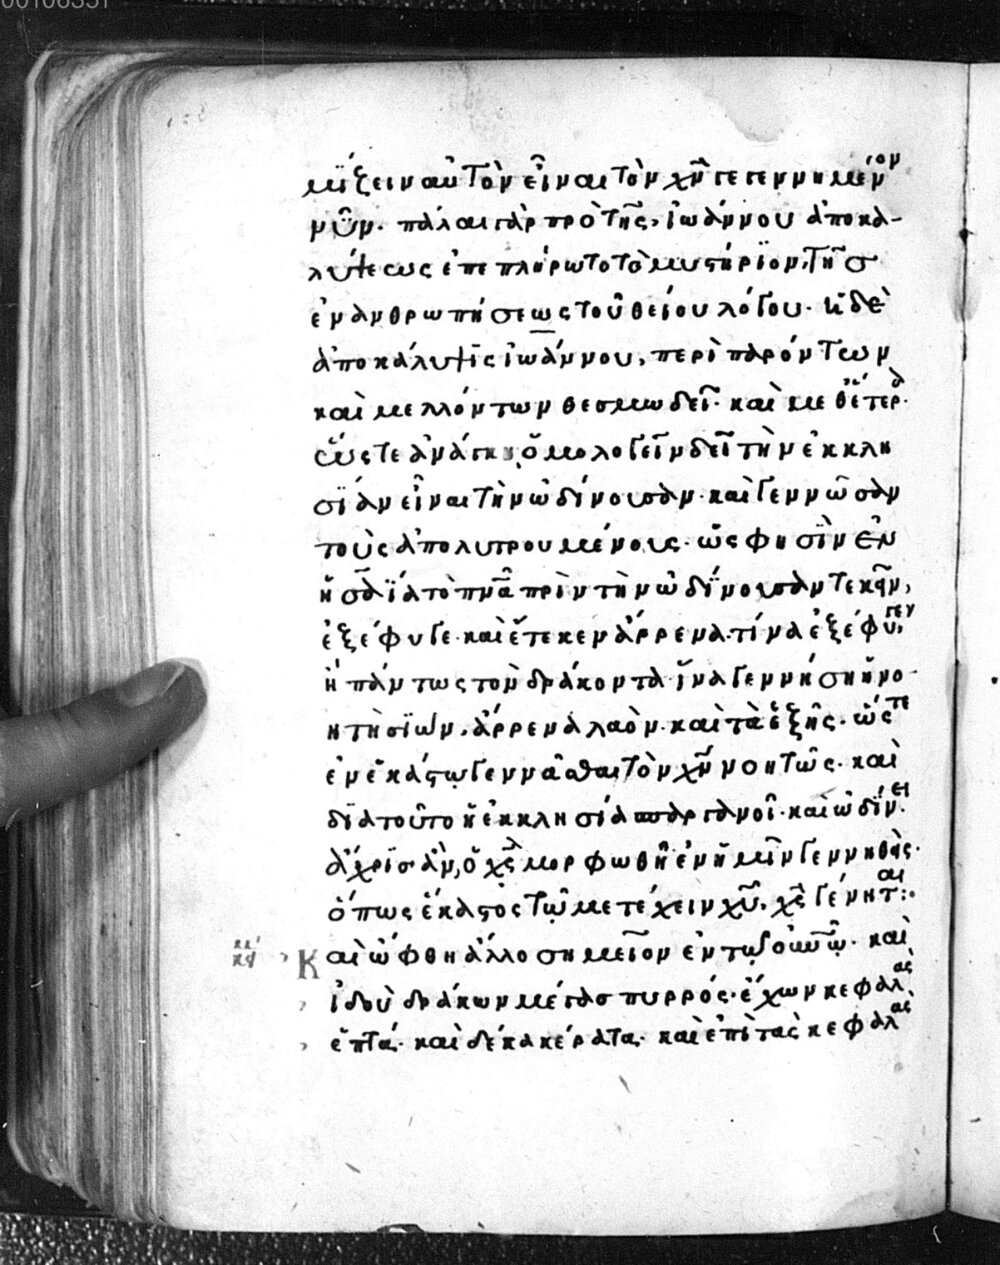 00106351
μΐζειν αὐτὸν εἶναι τὸν χν̅ γεγεννημένον
νῦν. πάλαι γὰρ πρὸ τῆς, ἰωάννου ἀποκα-
λύψεως ἐπεπλήρωτο τὸ μυστήριον, τῆσ
ἐνανθρωπήσεως τοῦ θείου λόγου. ἡ δὲ
ἀποκάλυψϊς ἰωάννου, περὶ παρόντων
καὶ μελλόντων θεσμωδεῖ. καὶ μεθ' ἕτερα.
ὥστε ἀνάγκη ὁμολογεῖν δεῖ τὴν ἐκκλη
σΐαν εἶναι τὴν ὠδίνουσαν. καὶ γεννῶσαν
τοὺς ἀπολυτρουμένους. ὥς φησϊν ἐν
ἡσαΐα τὸ πνα̅ πρὶν τὴν ὠδΐνουσαν τεκεῖν,
ἐξέφυγε. καὶ ἔτεκεν ἄρρενα. τίνα ἐξέφυγεν,
ἢ πάντως τὸν δράκοντα. ἵνα γεννήση ἡ νο
ητὴ σϊὼν, ἄρρενα λαὸν. καὶ τὰ ἑξῆς. ὥστε
ἐν ἑκάστω γεννᾶσθαι τὸν χν̅ νοητῶς. καὶ
δϊατοῦτο ἡ ἐκκλησία σπαργανοῖ. καὶ ὠδΐνει.
ἄχρϊσ ἂν, ὁ χς̅ μορφωθῆ ἐν ἡμῖν γεννηθεὶς.
ὅπως ἕκαστος τῶ μετέχειν χυ̅, χς̅ γένηται:.
κγ' Καὶ ὤφθη ἄλλο σημεῖον ἐν τῶ οὐνῶ. καὶ
ἰδοὺ δράκων μέγασ πυρρός. ἔχων κεφαλὰς
ἑπτά. καὶ δέκα κέρατα. καὶ ἐπὶ τὰς κεφαλὰς